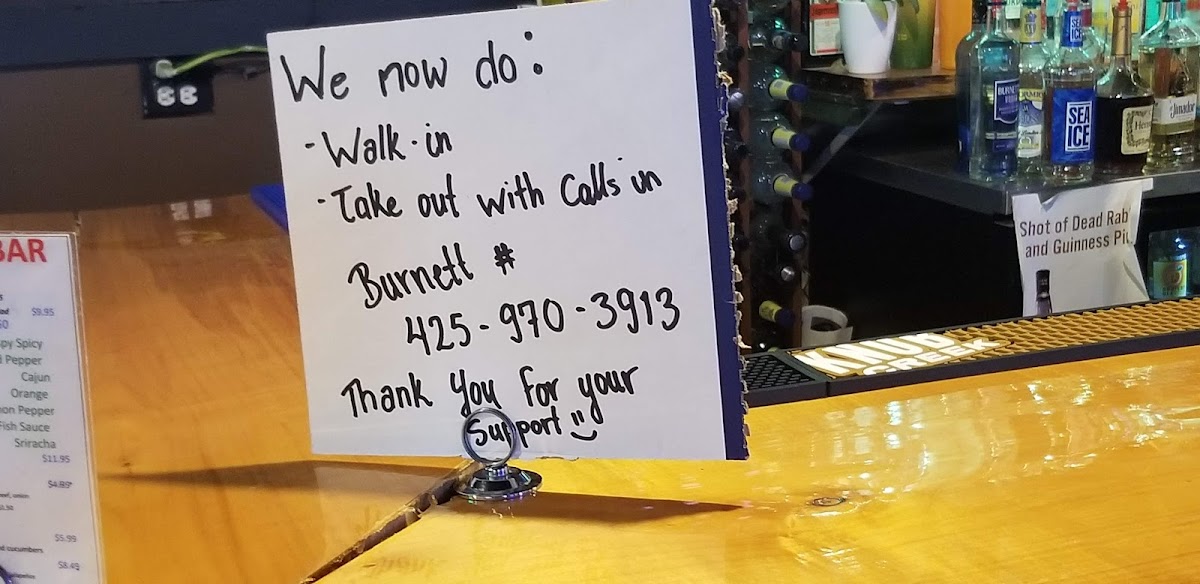 We now do:
- Walk-in
- Take out with Calls in
Burnett #
425-970-3913
Thank you for your
Support
BAR
$9.95
Pepper
Cajun
Orange
Pepper
Fish Sauce
Sriracha
$11.95
$4.89
$5.99
cucumbers
$8.49
SEA
ICE
SEA
ICE
Shot of Dead Rab
and Guinness Pi
CREEK